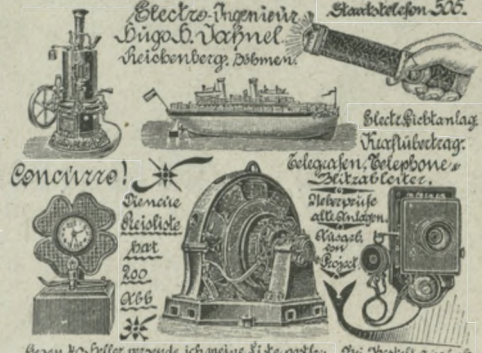 Electro-Ingenieur
Hugo H. Dahnel
Reichenberg, Böhmen.
Staatstelefon 506.
Electr. Lichtanlag.
Kraftübertrag.
Telegrafen, Telephone &
Blitzableiter.
Concurro!
Die neue
Preisliste
hat
200
Abb
Ueberprüfe
alte Anlagen.
Ausarb.
von
Project.
ich meine Liste